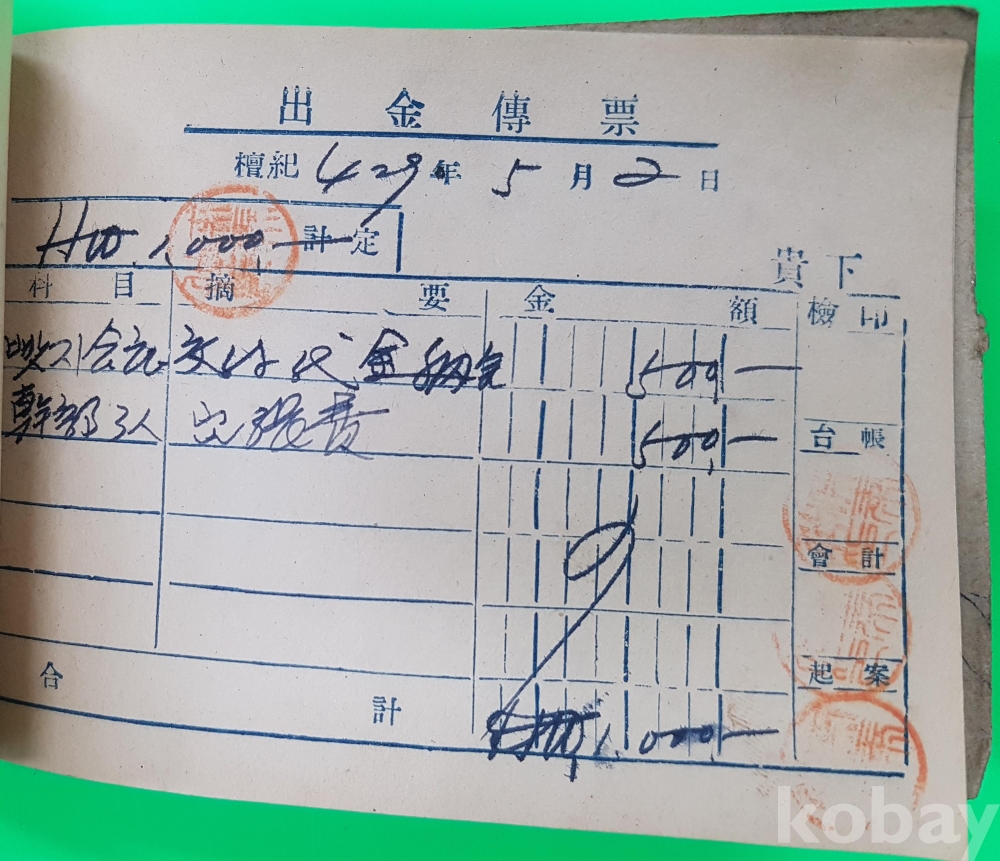 出金傳票
檀紀 429 年 5 月 2 日
1,000,— 計定
貴下
科目 摘要 金額 檢印
代金 500,—
幹部 3人 出張費 500,—
台帳
會計
起案
合計 1,000,—
kobay